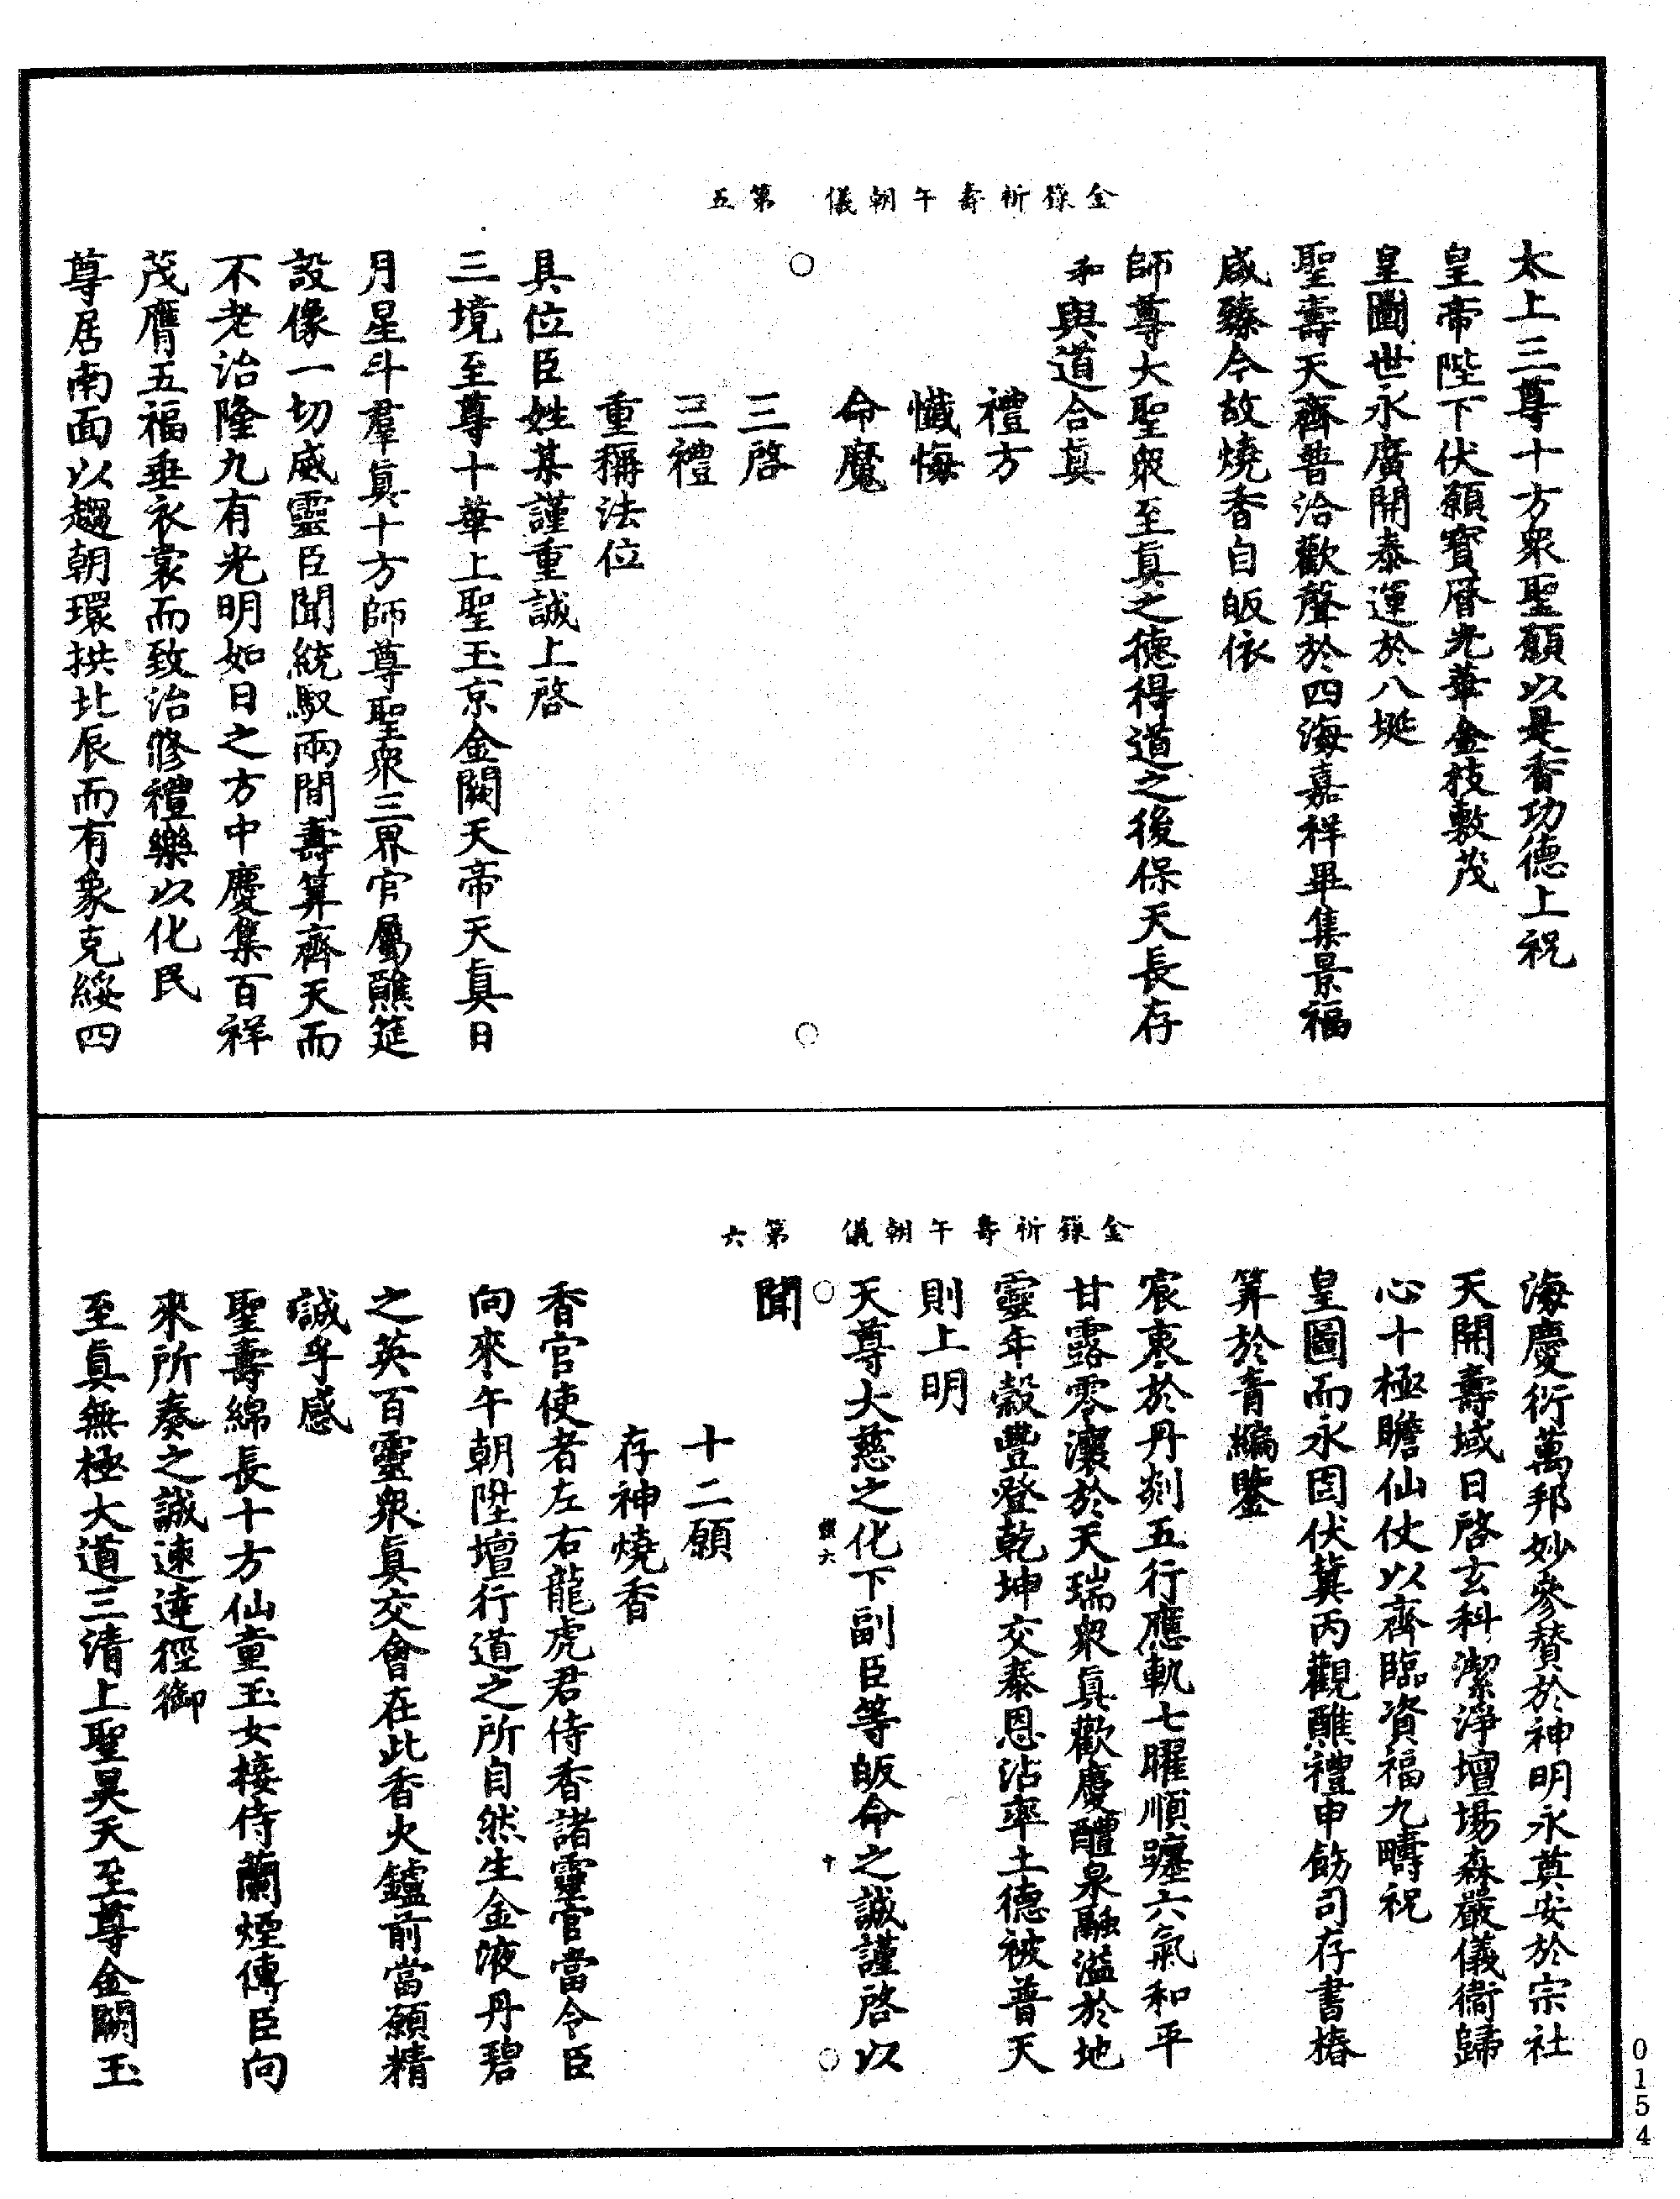 金籙祈壽午朝儀　第五
太上三尊十方衆聖願以是香功德上祝
皇帝陛下伏願寶曆光華金枝敷茂
皇圖世永廣開泰運於八埏
聖壽天齊普洽歡聲於四海嘉祥畢集景福
咸臻今故燒香自皈依
師尊大聖衆至眞之德得道之後保天長存
和與道合眞
禮方
懺悔
命魔
三啓
三禮
重稱法位
具位臣姓某謹重誠上啓
三境至尊十華上聖玉京金闕天帝天眞日
月星斗羣眞十方師尊聖衆三界官屬醮筵
設像一切威靈臣聞統馭兩間壽算齊天而
不老治隆九有光明如日之方中慶集百祥
茂膺五福垂衣裳而致治脩禮樂以化民
尊居南面以趨朝環拱北辰而有象克綏四
金籙祈壽午朝儀　第六
海慶衍萬邦妙參贊於神明永奠安於宗社
天開壽域日啓玄科潔淨壇場森嚴儀衞歸
心十極瞻仙仗以齊臨資福九疇祝
皇圖而永固伏冀丙觀醮禮申飭司存書椿
筭於青編鑒
宸衷於丹剡五行應軌七曜順躔六氣和平
甘露零瀼於天瑞衆眞歡慶醴泉融溢於地
靈年穀豐登乾坤交泰恩沾率土德被普天
則上明
天尊大慈之化下副臣等皈命之誠謹啓以
聞
十二願
存神燒香
香官使者左右龍虎君侍香諸靈官當令臣
向來午朝陞壇行道之所自然生金液丹碧
之英百靈衆眞交會在此香火鑪前當願精
誠孚感
聖壽綿長十方仙童玉女接侍蘭煙傳臣向
來所奏之誠速達徑御
至眞無極大道三清上聖昊天至尊金闕玉
0154